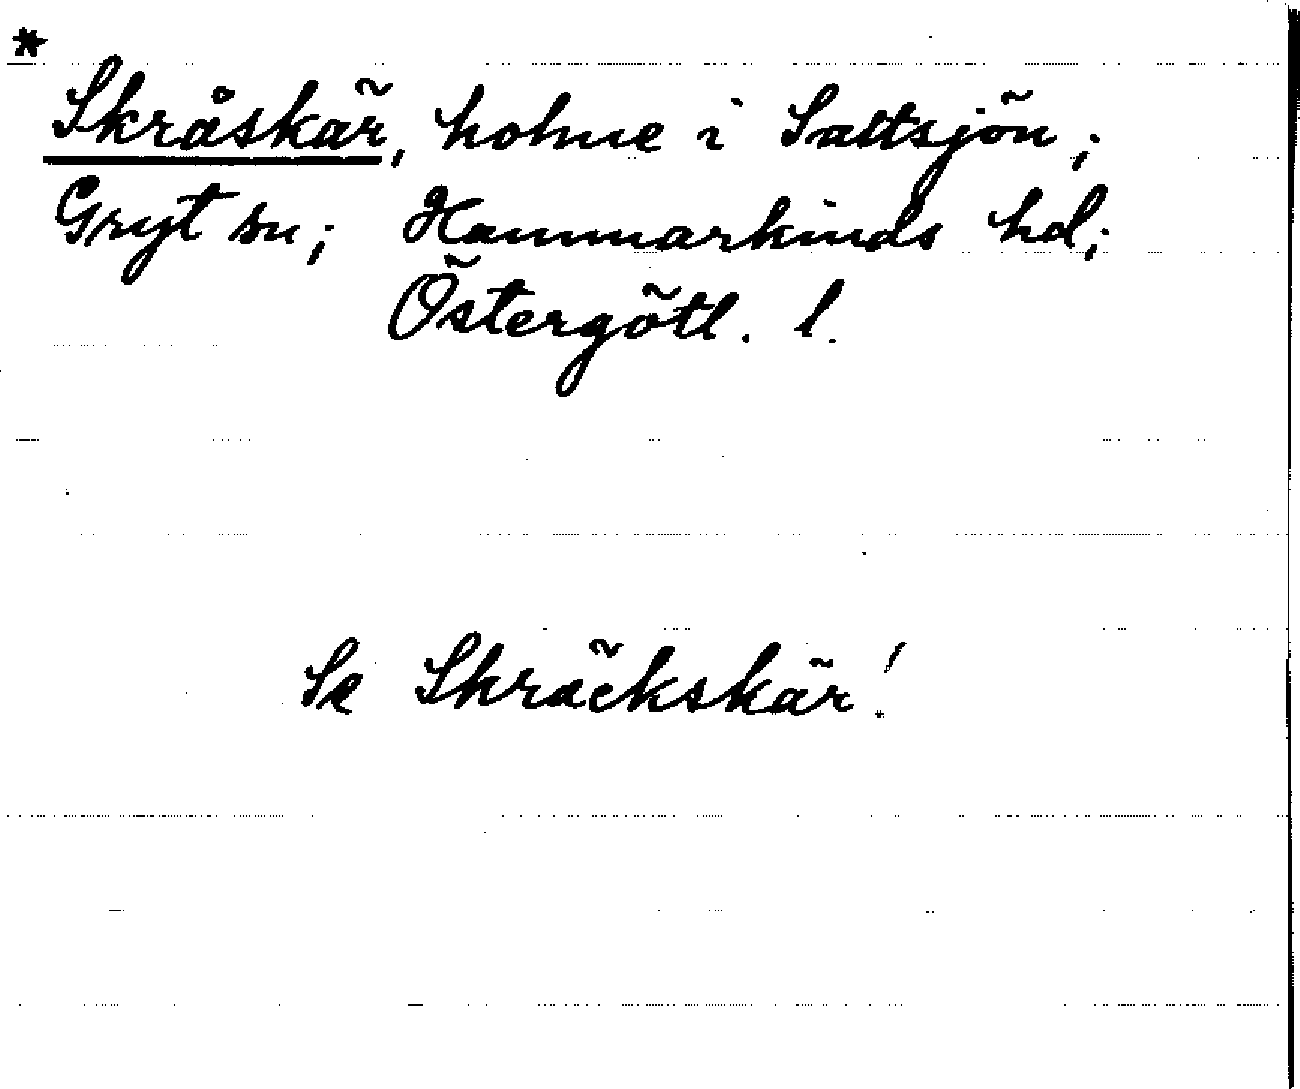 *
Skråskär, holme i Saltsjön;
Gryt sn; Hammarkinds hd;
Östergötl. l.
Se Skräckskär!